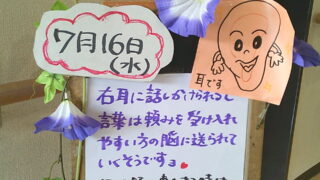 7月16日
(水)
耳です
右耳に話しかけられると
言葉は頼みを受け入れ
やすい方の脳に送られて
いくそうですョ